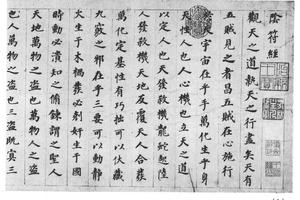 陰符經
觀天之道執天之行盡矣天有
五賊見之者昌五賊在心施行
天宇宙在乎手萬化生乎身
天性人也人心機也立天之道
以定人也天發殺機龍蛇起陸
人發殺機天地反覆天人合發
萬化定基性有巧拙可以伏藏
九竅之邪在乎三要可以動靜
火生于木禍發必剋奸生于國
時動必潰知之脩鍊謂之聖人
天地萬物之盜也萬物人之盜
也人萬物之盜也三盜既冥三